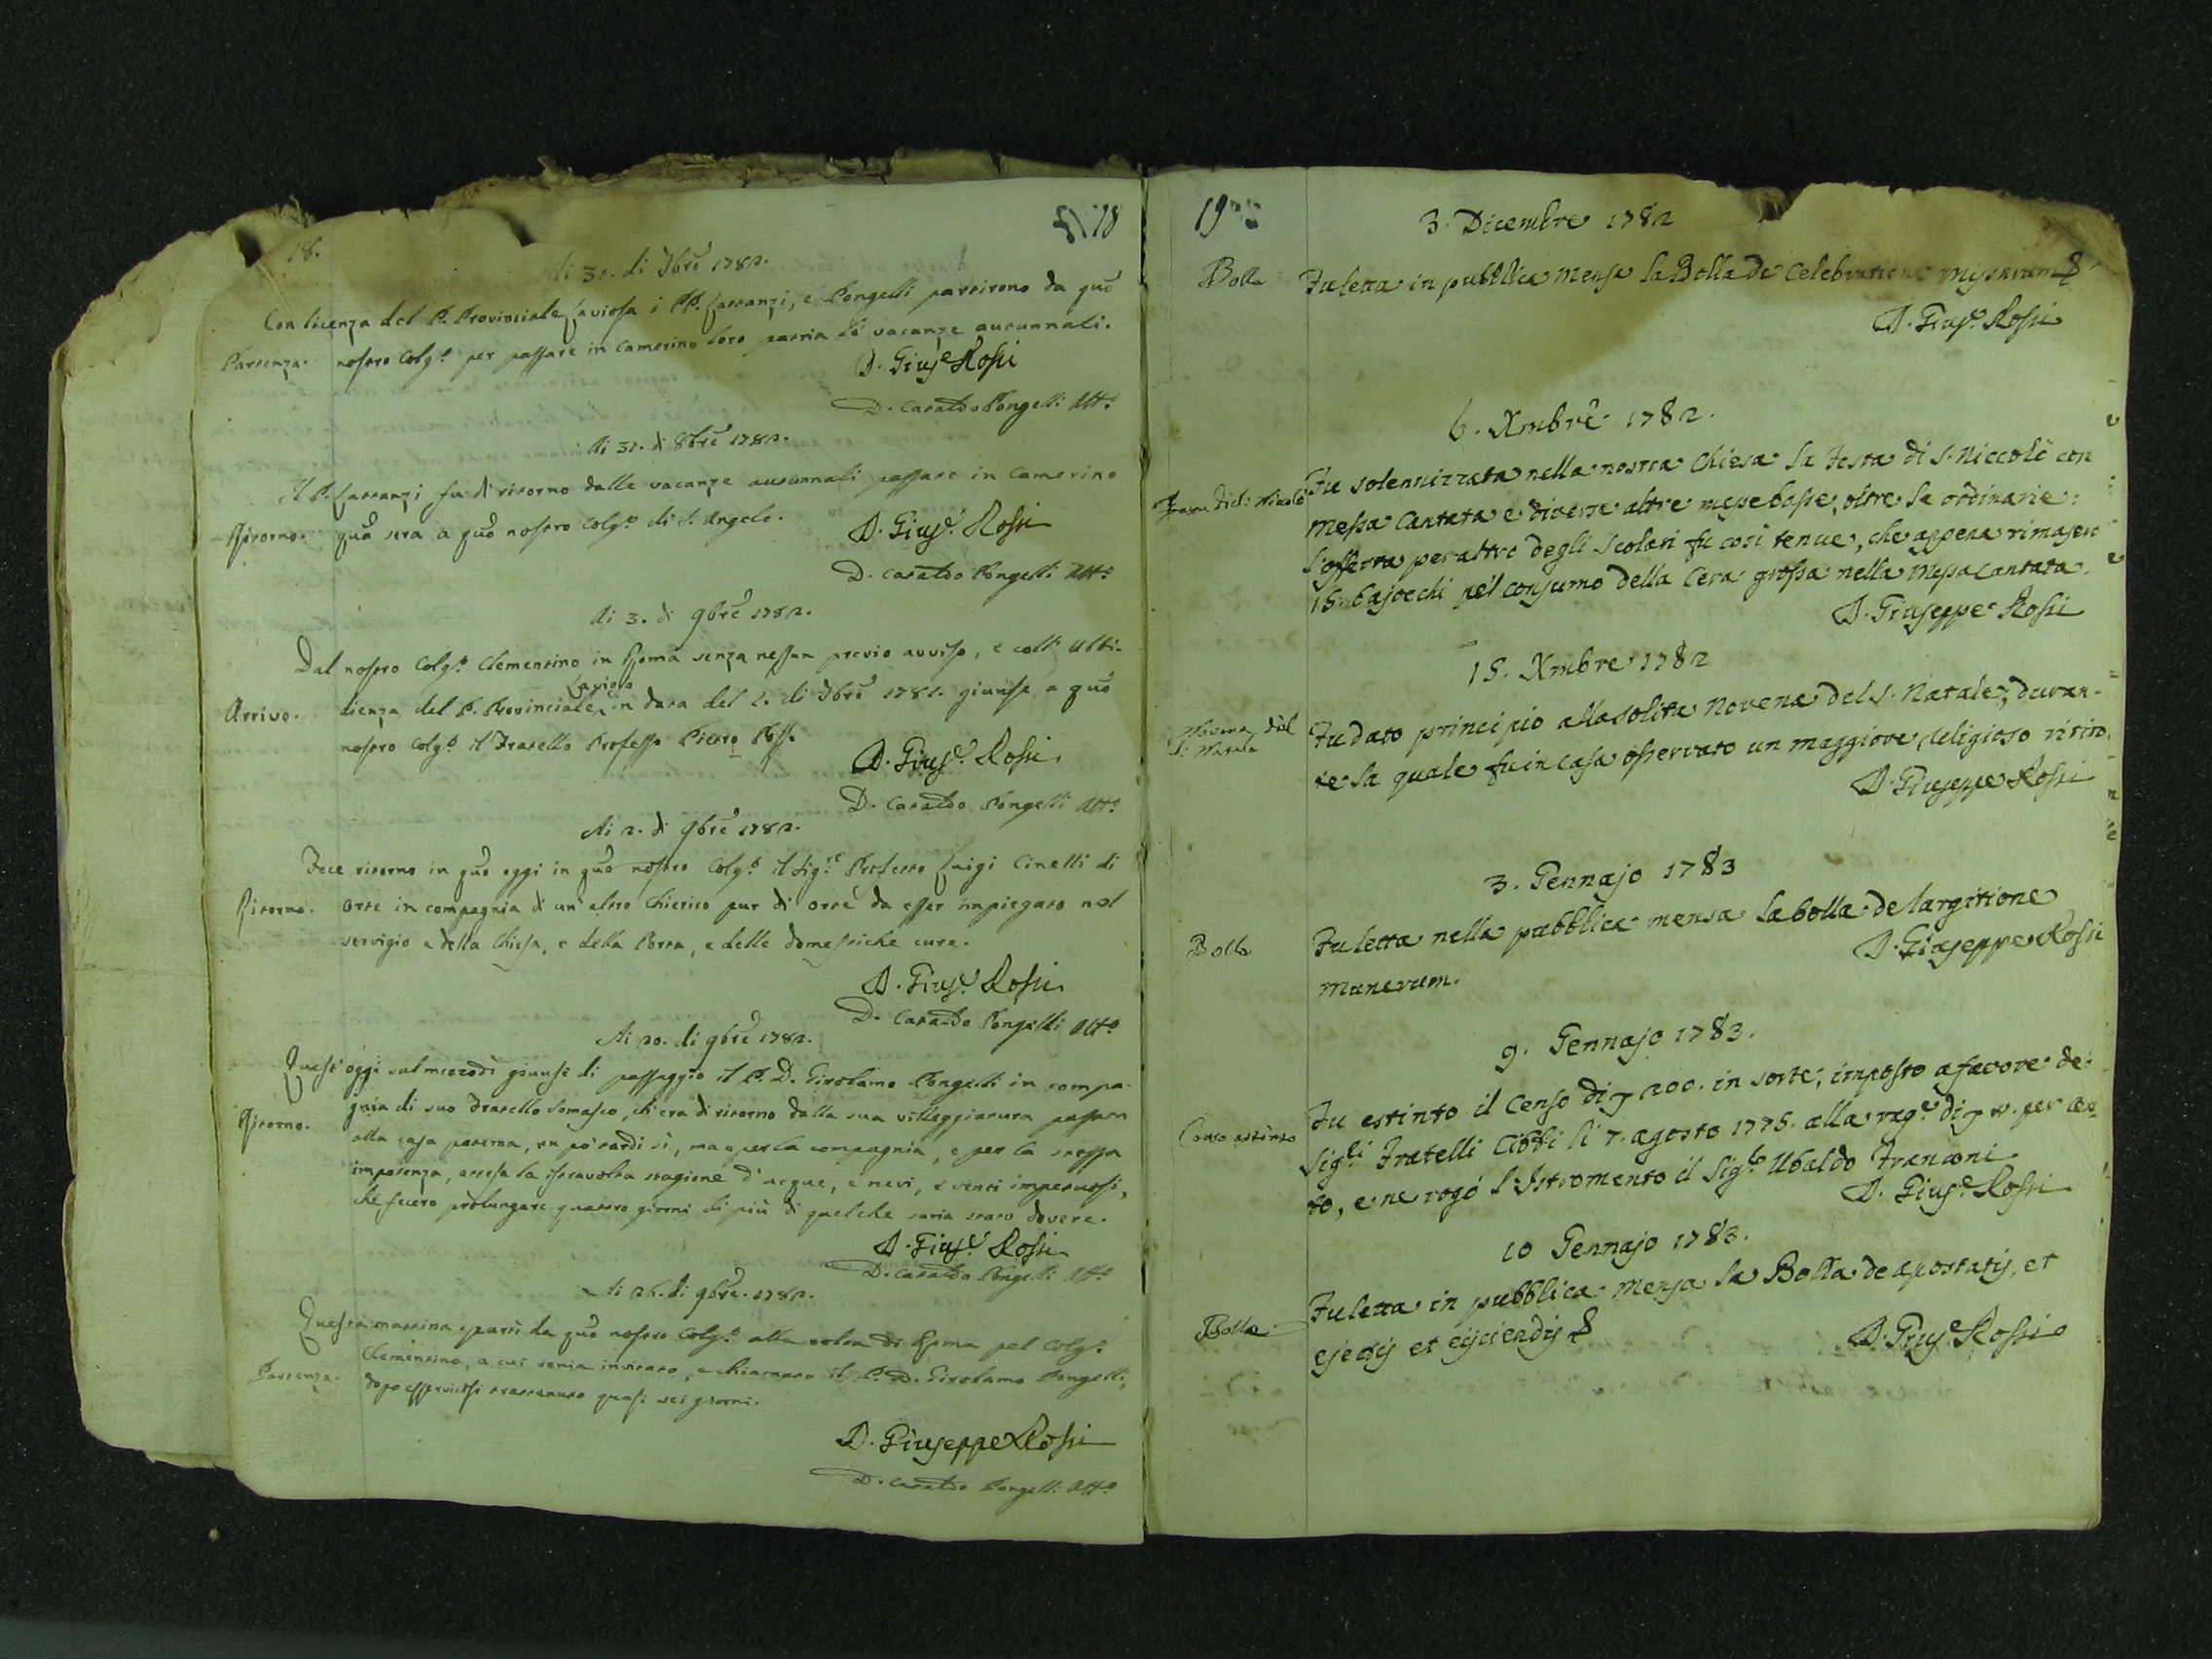 18.
18
di 30. di 7bre 1782.
Con licenza del P. Provinciale Laviosa i PP. Lattanzi, e Pongelli partirono da quo
Partenza. nostro Colgo. per passare in Camerino loro patria le vacanze autunnali.
D. Giuse Rossi
D. Cataldo Pongelli Atto.
Ai 31. di 8bre 1782.
Il P. Lattanzi fu di ritorno dalle vacanze autunnali passate in Camerino
Ritorno. qua sera a quo nostro Colgo. di S. Angelo.
D. Giuse. Rossi
D. Cataldo Pongelli Atto.
Ai 3. di 9bre 1782.
Dal nostro Colgo. Clementino in Roma senza nessun previo avviso, e coll' Ubbi-
Arrivo. dienza del P. Provinciale Laviosa in data del 2. di 7bre 1782. giunse a quo
nostro Colgo. il Fratello Professo Pietro
D. Giuse. Rossi
D. Cataldo Pongelli Atto.
Ai 2. di 9bre 1782.
Fece ritorno in quo oggi in quo nostro Colgo. il Sigre Prefetto Luigi Cinelli di
Ritorno. Orte in compagnia di un' altro Chierico pur di Orte da esser impiegato nel
servigio e della Chiesa, e della Porta, e delle domestiche cure.
D. Giuse. Rossi
D. Cataldo Pongelli Atto
Ai 20. di 9bre 1782.
Quest' oggi sul mezzodì giunse di passaggio il P. D. Girolamo Pongelli in compa-
Ritorno. gnia di suo Fratello Somasco, ch'era di ritorno dalla sua villeggiatura passata
alla casa paterna, un pò tardi sì, ma e per la compagnia, e per la stessa
impotenza, attesa la stravolta stagione d' acque, e nevi, e venti impetuosi,
che fecero prolungare quattro giorni di più di quelche saria stato dovere.
D. Giuse. Rossi
D. Cataldo Pongelli Atto
Ai 26. di 9bre. 1782.
Questa mattina partì da quo nostro Colgo. alla volta di Roma pel Colgo.
Partenza. Clementino, a cui venia invitato, e chiamato il P. D. Girolamo Pongelli,
dopo esservisi trattenuto quasi sei giorni.
D. Giuseppe Rossi
D. Cataldo Pongelli Atto
19
3. Dicembre 1782
Bolla Fu letta in pubblica mensa la Bolla de Celebratione Missarum &
D. Giuse. Rossi
6. Xmbre 1782.
Festa di S. Nicolò Fu solennizzata nella nostra Chiesa la Festa di S. Niccolò con
Messa Cantata e diverse altre messe basse, oltre le ordinarie:
l'offerta peraltro degli Scolari fu così tenue, che appena rimasero
15. bajocchi pel consumo della Cera grossa nella Messa Cantata.
D. Giuseppe Rossi
15. Xmbre 1782
Novena del S. Natale Fu dato principio alla solita Novena del S. Natale; duran-
te la quale fu in casa osservato un maggiore religioso ritiro.
D. Giuseppe Rossi
3. Gennajo 1783
Bolla Fu letta nella pubblica mensa la bolla de largitione
munerum.
D. Giuseppe Rossi
9. Gennajo 1783.
Censo estinto Fu estinto il Censo di 200. in sorte, imposto a favore de'
Sigri Fratelli Cibbi li 7. agosto 1775. alla rage di per cen-
to, e ne rogò l'Istromento il Sigre Ubaldo Franconi
D. Giuse. Rossi
10 Gennajo 1783.
Bolla Fu letta in pubblica mensa la Bolla de apostatis, et
ejectis et ejiciendis &
D. Giuse Rossi